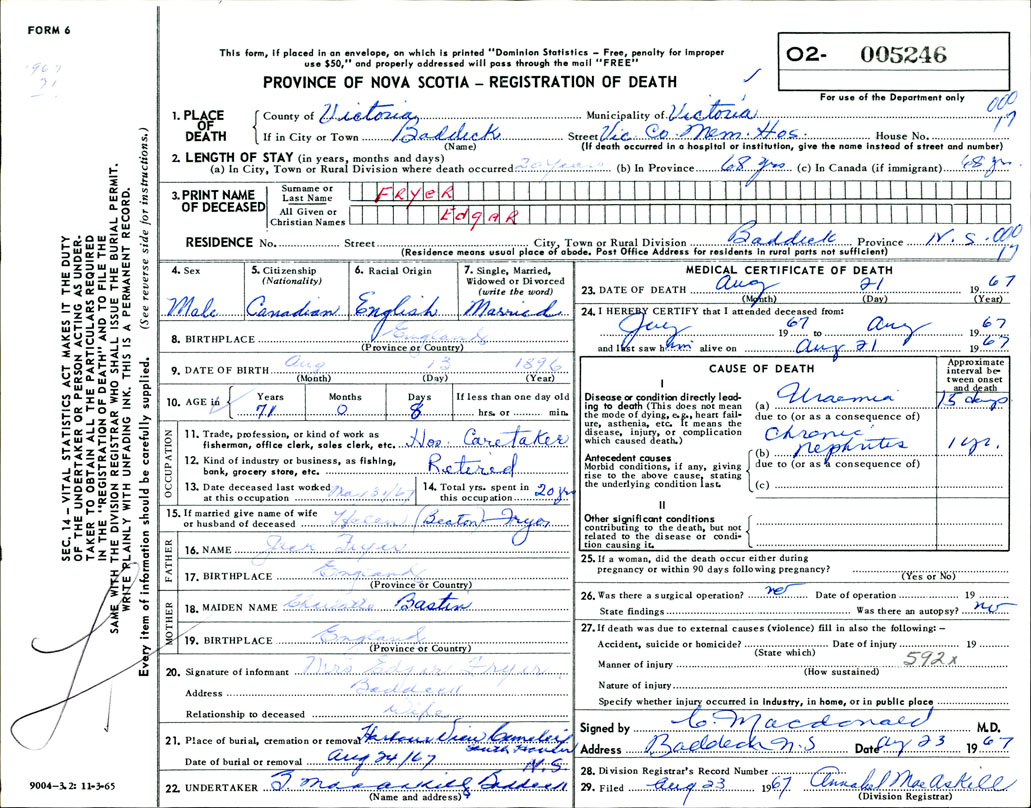 FORM 6
This form, if placed in an envelope, on which is printed "Dominion Statistics – Free, penalty for improper
use $50," and properly addressed will pass through the mail "FREE"
PROVINCE OF NOVA SCOTIA – REGISTRATION OF DEATH
02- 005246
For use of the Department only
000
17
1. PLACE OF DEATH
County of Victoria Municipality of Victoria
If in City or Town Baddeck Street Vic. Co. Mem. Hos. House No.
(Name) (If death occurred in a hospital or institution, give the name instead of street and number)
2. LENGTH OF STAY (in years, months and days)
(a) In City, Town or Rural Division where death occurred 20 years (b) In Province 68 yrs (c) In Canada (if immigrant) 68 yr.
3. PRINT NAME OF DECEASED
Surname or Last Name FRyeR
All Given or Christian Names EdgAR
RESIDENCE No. Street City, Town or Rural Division Baddeck Province N.S. 000
17
(Residence means usual place of abode. Post Office Address for residents in rural parts not sufficient)
4. Sex Male
5. Citizenship (Nationality) Canadian
6. Racial Origin English
7. Single, Married, Widowed or Divorced (write the word) Married
8. BIRTHPLACE England
(Province or Country)
9. DATE OF BIRTH Aug 13 1896
(Month) (Day) (Year)
10. AGE in Years 71 Months 0 Days 8 If less than one day old hrs. or min.
OCCUPATION
11. Trade, profession, or kind of work as
fisherman, office clerk, sales clerk, etc. Hos. Caretaker
12. Kind of industry or business, as fishing,
bank, grocery store, etc. Retired
13. Date deceased last worked
at this occupation
14. Total yrs. spent in
this occupation 20 yrs
15. If married give name of wife
or husband of deceased Helen (Beaton) Fryer
FATHER
16. NAME Fryer
17. BIRTHPLACE England
(Province or Country)
MOTHER
18. MAIDEN NAME Charlotte Bastin
19. BIRTHPLACE England
(Province or Country)
20. Signature of informant Mrs Edgar Fryer
Address Baddeck
Relationship to deceased Wife
21. Place of burial, cremation or removal Harbour View Cemetery
N.S.
Date of burial or removal Aug 24/67
22. UNDERTAKER Baddeck
(Name and address)
MEDICAL CERTIFICATE OF DEATH
23. DATE OF DEATH Aug 21 1967
(Month) (Day) (Year)
24. I HEREBY CERTIFY that I attended deceased from:
1967 to Aug 1967
and last saw him alive on Aug 21 1967
CAUSE OF DEATH
Approximate interval between onset and death
I
Disease or condition directly leading to death (This does not mean the mode of dying, e.g., heart failure, asthenia, etc. It means the disease, injury, or complication which caused death.)
(a) Uraemia 15 days
due to (or as a consequence of)
Antecedent causes
Morbid conditions, if any, giving rise to the above cause, stating the underlying condition last.
(b) chronic nephritis 1 yr.
due to (or as a consequence of)
(c)
II
Other significant conditions
contributing to the death, but not related to the disease or condition causing it.
25. If a woman, did the death occur either during
pregnancy or within 90 days following pregnancy?
(Yes or No)
26. Was there a surgical operation? no Date of operation 19
State findings Was there an autopsy? no
27. If death was due to external causes (violence) fill in also the following: –
Accident, suicide or homicide? Date of injury 19
(State which)
Manner of injury 592x
(How sustained)
Nature of injury
Specify whether injury occurred in Industry, in home, or in public place
Signed by C Macdonald M.D.
Address Baddeck N.S Date Aug 23 1967
28. Division Registrar's Record Number
29. Filed Aug 23 1967 Annabel MacAskill
(Division Registrar)
SEC. 14 – VITAL STATISTICS ACT MAKES IT THE DUTY
OF THE UNDERTAKER OR PERSON ACTING AS UNDER-
TAKER TO OBTAIN ALL THE PARTICULARS REQUIRED
IN THE "REGISTRATION OF DEATH" AND TO FILE THE
SAME WITH THE DIVISION REGISTRAR WHO SHALL ISSUE THE BURIAL PERMIT.
WRITE PLAINLY WITH UNFADING INK. THIS IS A PERMANENT RECORD.
Every item of information should be carefully supplied. (See reverse side for instructions.)
9004-3.2: 11-3-65